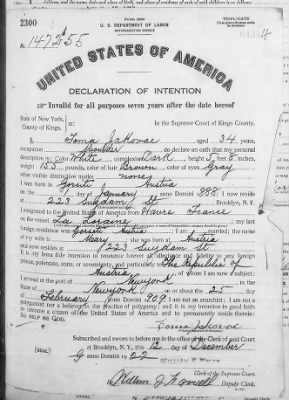 TRIPLICATE
2300
U. S. DEPARTMENT OF LABOR
NATURALIZATION SERVICE
No. 147255
UNITED STATES OF AMERICA
DECLARATION OF INTENTION
Invalid for all purposes seven years after the date hereof
State of New York,
County of Kings,
In the Supreme Court of Kings County.
I, Toma aged 34 years,
occupation do declare on oath that my personal
description is: Color White complexion Dark height 5 feet 8 inches,
weight 165 pounds, color of hair Brown color of eyes Gray
other visible distinctive marks none
I was born in Austria
on the day of January anno Domini 1888 I now reside
at 223 St Brooklyn, N. Y.
I emigrated to the United States of America from Havre France
on the vessel La Loraine my last
foreign residence was Austria I am married; the name
of my wife is Mary she was born in Austria
and now resides at 223 St
It is my bona fide intention to renounce forever all allegiance and fidelity to any foreign
prince, potentate, state, or sovereignty, and particularly to The Republic of
Austria of whom I am now a subject;
I arrived at the port of New York in the
State of New York on or about the 25 day
of February anno Domini 1909 I am not an anarchist; I am not a
polygamist nor a believer in the practice of polygamy; and it is my intention in good faith
to become a citizen of the United States of America and to permanently reside therein:
SO HELP ME GOD.
Toma
Subscribed and sworn to before me in the office of the Clerk of said Court
at Brooklyn, N. Y., this 12 day of December
anno Domini 1922
[SEAL]
Clerk of the Supreme Court.
By Deputy Clerk.